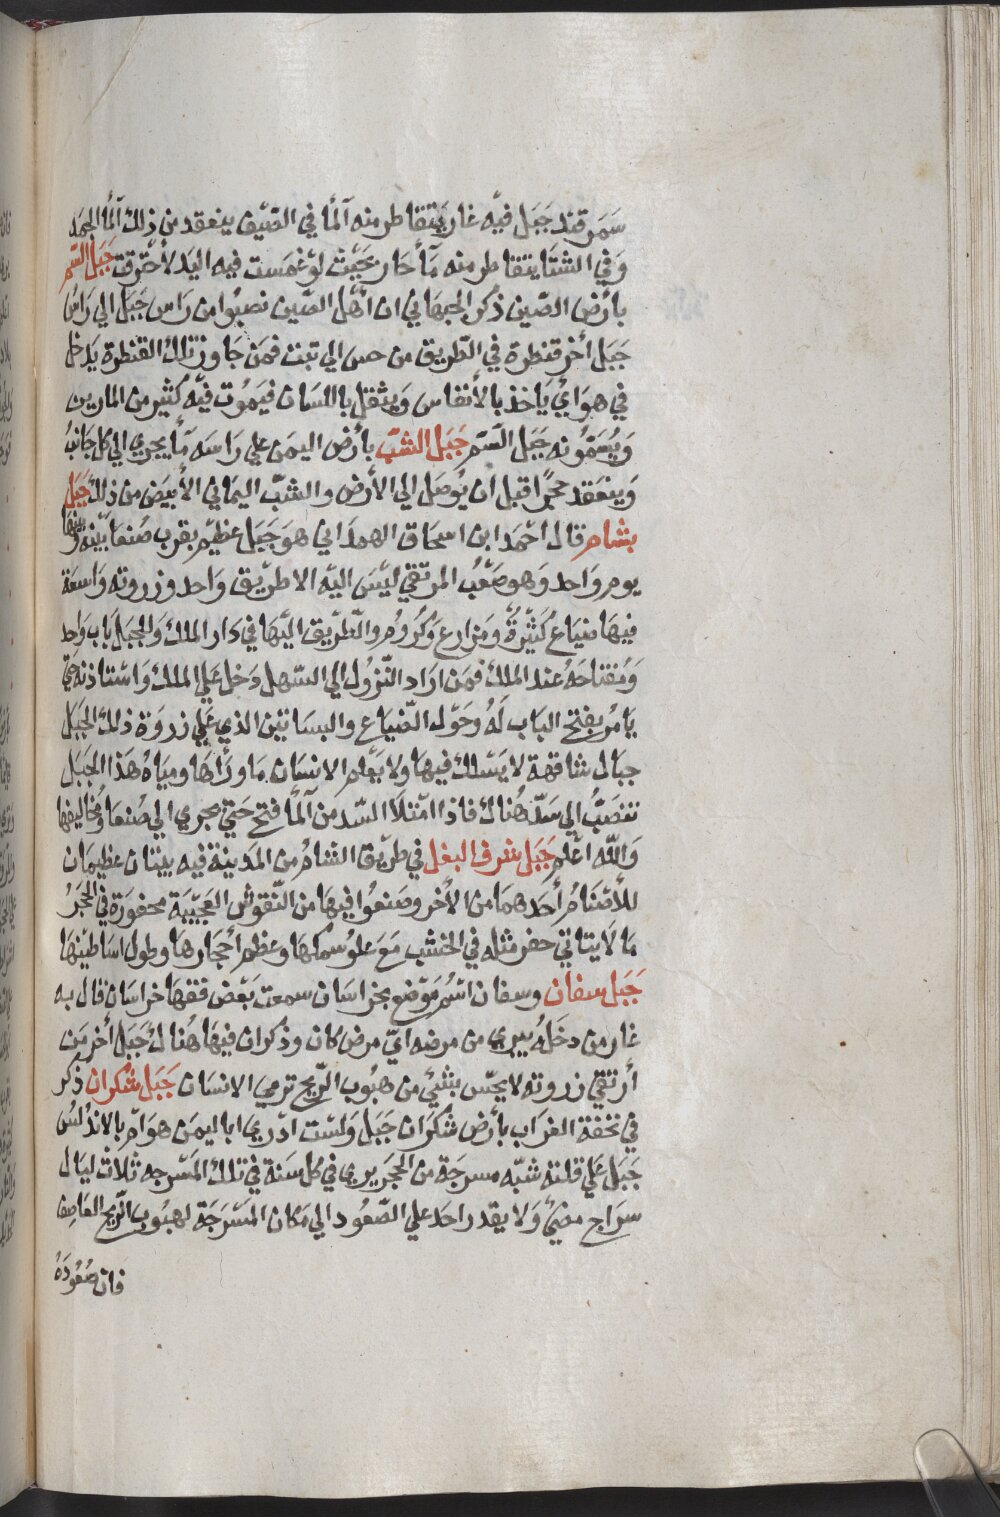 سَمَرقند جَبَل فيْه غار يَتقاطر منه آلمَا في الصّيْف ينعقد من ذلك آلمَا الجمَد
وَفي الشتَا يتقاطر منه مَآ حَار بحَيْث لوْ غمَست فيه اليَد لاحْترقت جَبَل السّم
بارْض الصّين ذكر الجيهَاني ان اهْل الصّين نصبُوا من رَاس جَبَل الي رَاسُ
جَبَل أخر قنطرة في الطّريق من حس الي تبت فمَن جَاوز تلك القنطرة يَدخل
في هوَايْ يَاخذ بالأنفاس وَيثقل باللسَان فيَموُت فيْه كثير من المارين
وَيُسَمّوُنه جَبَل السّم جَبَل الشبّ بارْض اليمَن علي رَاسَه مَّا يجري الي كل جَانبُ
وَينعَقد حجرًا قبل ان يُوصَل الي الأرض والشبّ اليمَاني الأبيَض من ذلك جَبَل
بشام قال احْمَد ابن اسحَاق الهمدَاني هوَ جَبَل عظيْم بقرب صُنعَا بَيْنه وَبَينهَا
يوم وَاحد وَهو صَعْبُ المرتقي ليْسَ اليْه الا طرِيْق وَاحد وزروته وَاسعَة
فيهَا ضيَاعُ كثيْرةُ وَمزارع وَكرُوم والطّرِيْق اليْهَا في دَار الملك وَللجبَل بَاب وَاحد
وَمُفتاحَهُ عند الملك فمَن ارَاد النّزوُل الي السّهل دَخل عَلي الملك وَاسْتاذنه حَتي
يَامُر بفتح البَاب لَهُ وَحَوْل الضّيَاع والبسَاتيْن الذي عَلي زروَة ذلك الجبَل
جبَال شاقهة لا يَسْلك فيهَا وَلا يَعْلم الانسَان مَا ورَأها وَميَاهُ هَذا الجبَل
تنصَبُّ الي سَدّ هُناك فاذا امْتلَا السّد من آلمَا فتح حَتيْ يجري الي صُنعَا وَمخاليفها
وَاللّه اعْلم جَبَل شرف البغل في طرِيْق الشامُ من المَدينة فيه بيتان عظيمَان
للأصْنامُ أحَدهمَا من الأخر وصَنعُوا فيهَا من النّقوُش العَجيْبَة محفورَة في الحجَرُ
مَا لا يَتاتي حفر مثله في الخشب مَعَ علوُ سْمكهَا وَعظم أحْجَارهَا وطول اسَاطيْنهَا
جَبَل سفان وسفان اسْمُ مَوْضع بخراسَان سمعت بَعْض فقهَا خراسَان قال به
غار من دخَلهُ يبري من مرضه ايّ مرض كان وَذكر ان فيهَا هُنالكْ جَبَل أخر مَن
أرتقي زروته لا يحسّ بشيْئ من هبوُب الرّيح ترمي الانسَان جَبَل شكران ذكر
في تحَفة الغرَاب بأرْض شكرَان جَبَل وَلسْت ادْري ابا ليمَن هوَ امْ بالاندَلسُ
جَبَل عَلي قلته شبْه مسرجَة من الحجَر يري في كل سَنة في تلك المَسْرجه ثلاث ليَال
سرَاج مضيْئ وَلا يقدر احَد علي الصّعُود الي مَكان المَسْرجَة لهبُوب الرّيح العَاصف
فان صُعُودَهُ